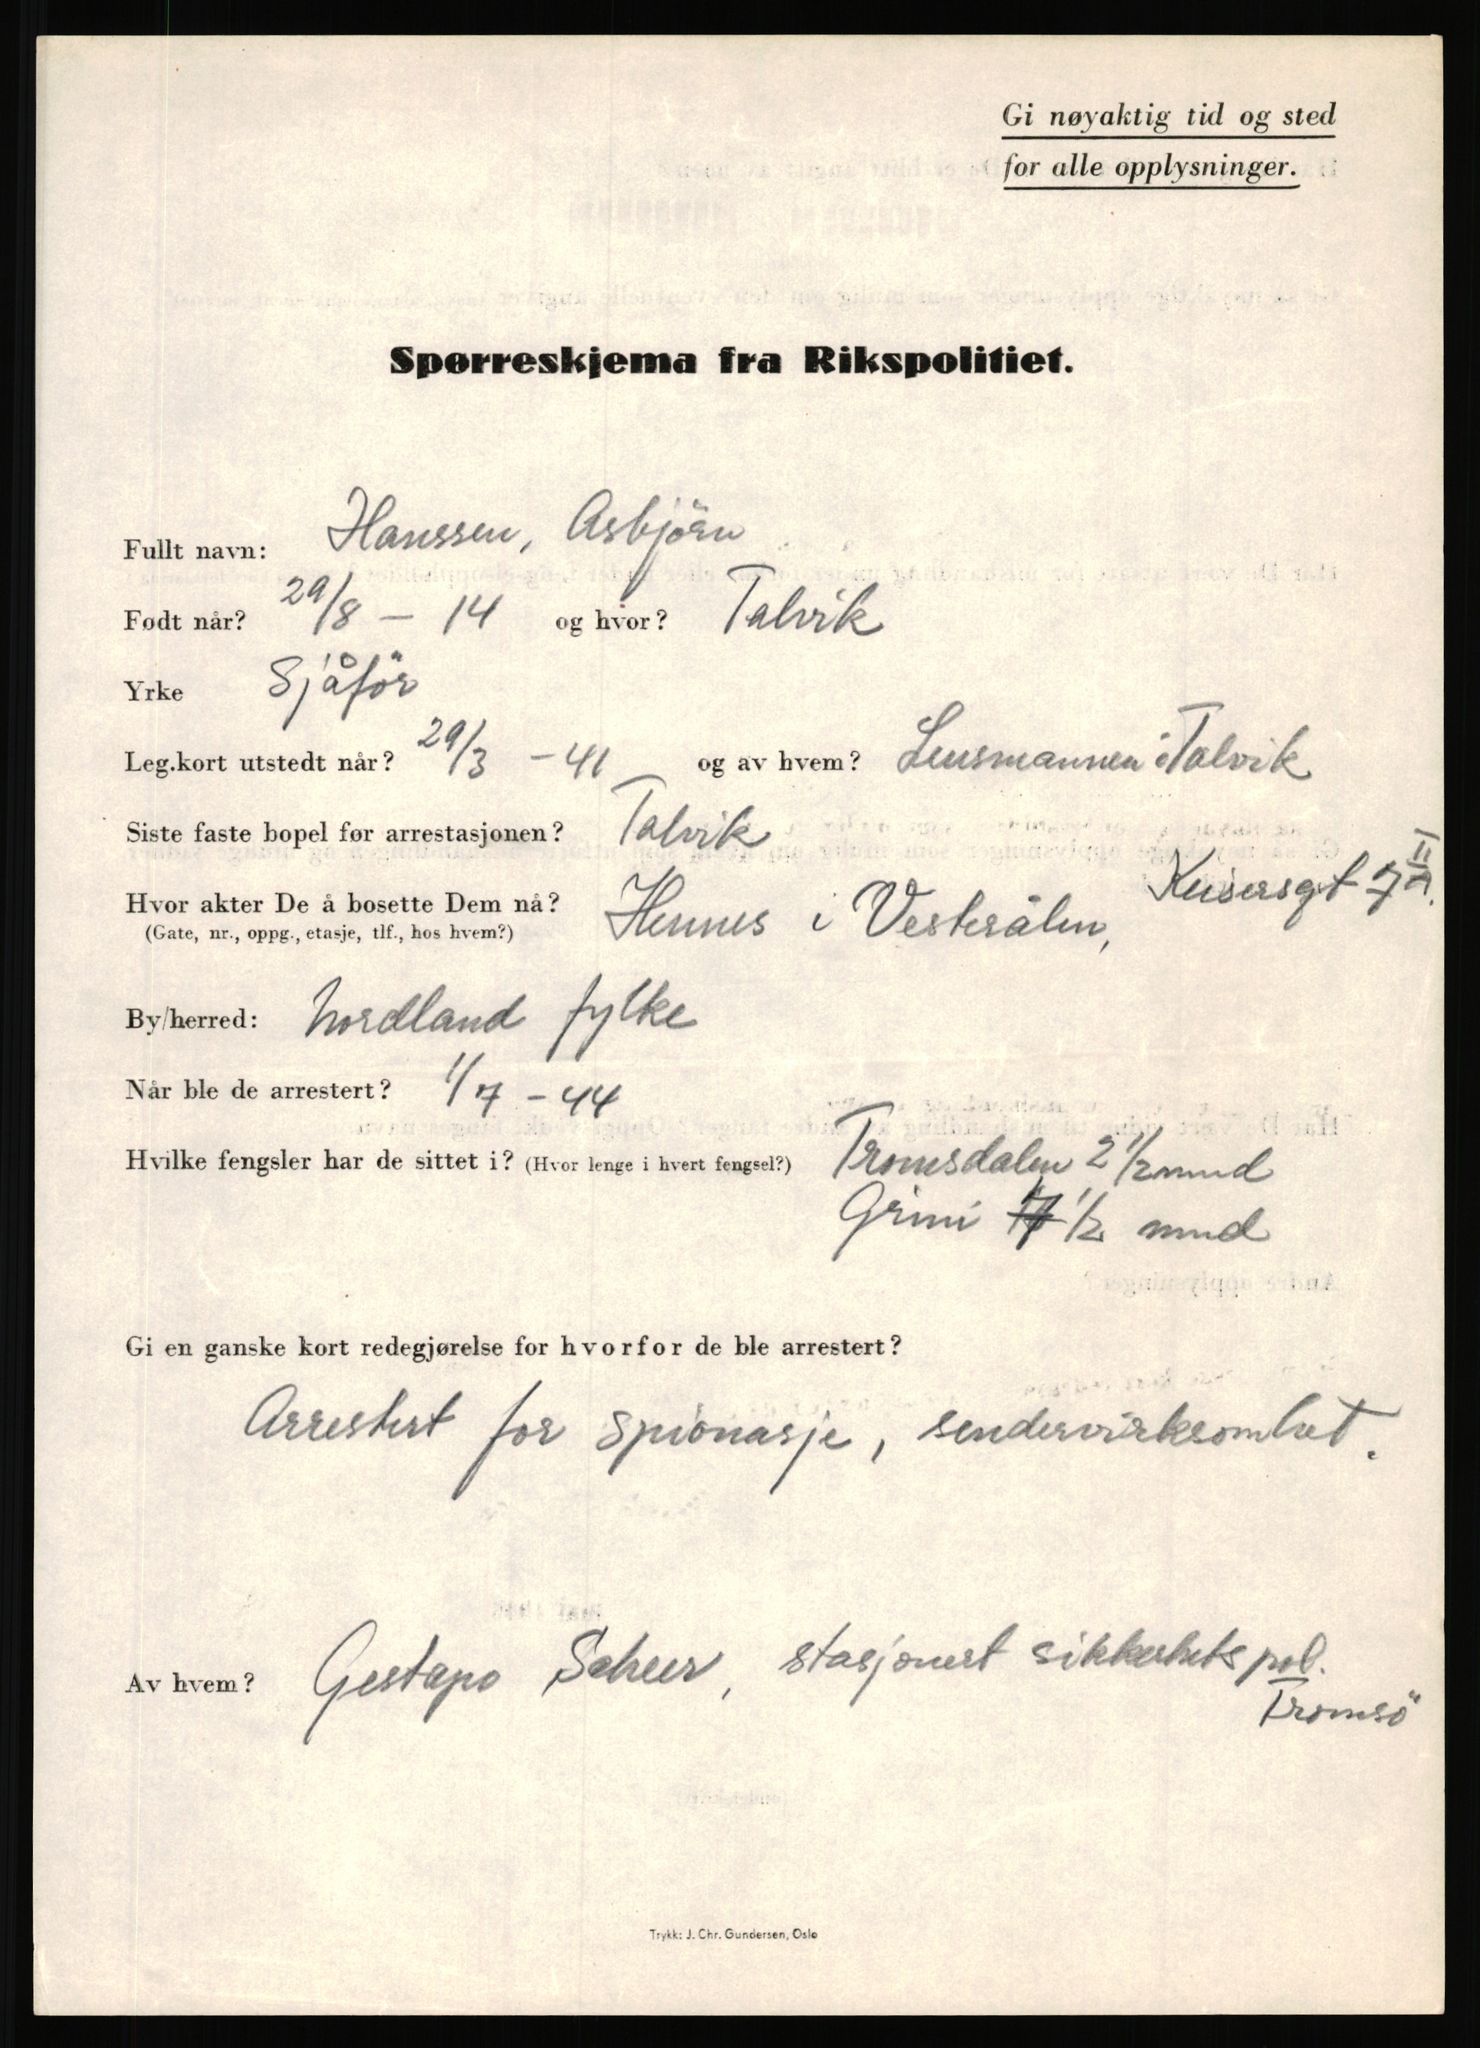 Gi nøyaktig tid og sted
for alle opplysninger.
Spørreskjema fra Rikspolitiet.
Fullt navn: Hanssen, Asbjörn
Født når? 29/8 - 14 og hvor? Talvik
Yrke Sjåför
Leg.kort utstedt når? 29/3 - 41 og av hvem? Lensmannen i Talvik
Siste faste bopel før arrestasjonen? Talvik
Hvor akter De å bosette Dem nå? Hennes i Vesterålen, Keisersgt 7 II
(Gate, nr., oppg., etasje, tlf., hos hvem?)
By/herred: Nordland fylke
Når ble de arrestert? 1/7 - 44
Hvilke fengsler har de sittet i? (Hvor lenge i hvert fengsel?) Tromsdalen 2 1/2 mnd
Grini 7 1/2 mnd
Gi en ganske kort redegjørelse for hvorfor de ble arrestert?
Arrestert for spionasje, sendervirksomhet.
Av hvem? Gestapo Scheer, stasjonert sikkerhetspol.
Tromsö
Trykk: J. Chr. Gundersen, Oslo